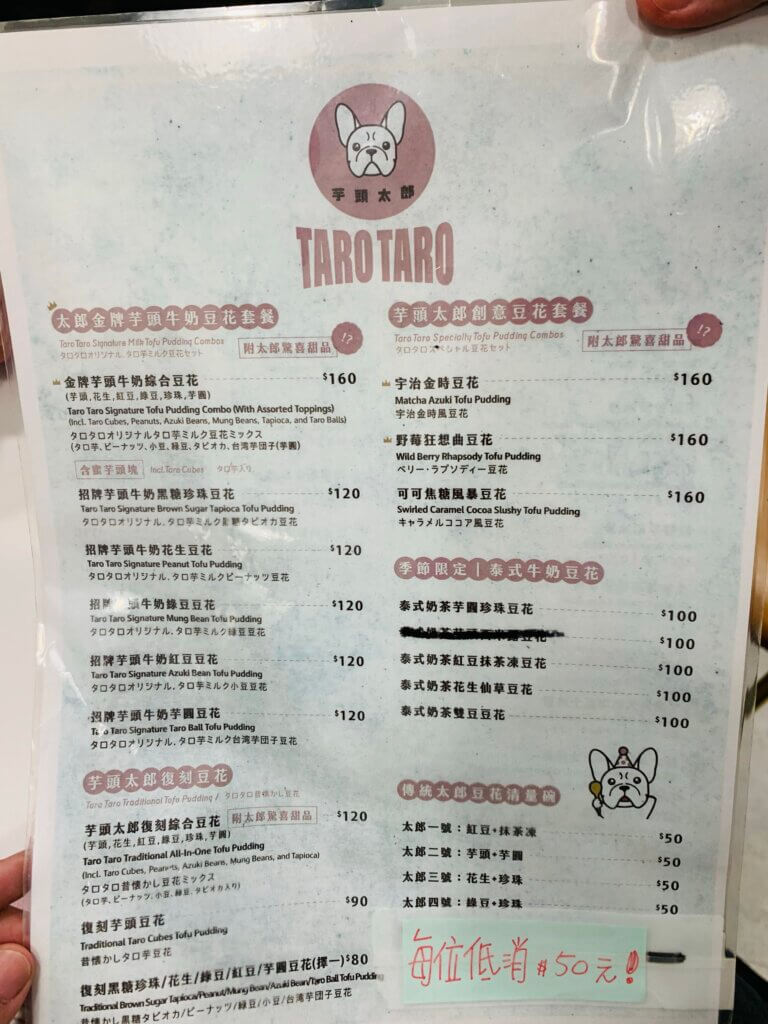 芋頭太郎
TARO TARO
太郎金牌芋頭牛奶豆花套餐
Taro Taro Signature Milk Tofu Pudding Combos
タロタロオリジナル、タロ芋ミルク豆花セット
附太郎驚喜甜品
!?
金牌芋頭牛奶綜合豆花 $160
(芋頭,花生,紅豆,綠豆,珍珠,芋圓)
Taro Taro Signature Tofu Pudding Combo (With Assorted Toppings)
(Incl. Taro Cubes, Peanuts, Azuki Beans, Mung Beans, Tapioca, and Taro Balls)
タロタロオリジナルタロ芋ミルク豆花ミックス
(タロ芋、ピーナッツ、小豆、緑豆、タピオカ、台湾芋団子(芋圓)
含蜜芋頭塊 Incl. Taro Cubes タロ芋入り
招牌芋頭牛奶黑糖珍珠豆花 $120
Taro Taro Signature Brown Sugar Tapioca Tofu Pudding
タロタロオリジナル、タロ芋ミルク黒糖タピオカ豆花
招牌芋頭牛奶花生豆花 $120
Taro Taro Signature Peanut Tofu Pudding
タロタロオリジナル、タロ芋ミルクピーナッツ豆花
招 頭牛奶綠豆豆花 $120
Taro Taro Signature Mung Bean Tofu Pudding
タロタロオリジナル、タロ芋ミルク緑豆豆花
招牌芋頭牛奶紅豆豆花 $120
Taro Taro Signature Azuki Bean Tofu Pudding
タロタロオリジナル、タロ芋ミルク小豆豆花
招牌芋頭牛奶芋圓豆花 $120
Taro Taro Signature Taro Ball Tofu Pudding
タロタロオリジナル、タロ芋ミルク台湾芋団子豆花
芋頭太郎復刻豆花
Taro Taro Traditional Tofu Pudding / タロタロ昔懐かし豆花
芋頭太郎復刻綜合豆花 附太郎驚喜甜品 $120
(芋頭,花生,紅豆,綠豆,珍珠,芋圓)
Taro Taro Traditional All-In-One Tofu Pudding
(Incl. Taro Cubes, Peanuts, Azuki Beans, Mung Beans, and Tapioca)
タロタロ昔懐かし豆花ミックス
(タロ芋、ピーナッツ、小豆、緑豆、タピオカ入り)
復刻芋頭豆花 $90
Traditional Taro Cubes Tofu Pudding
昔懐かしタロ芋豆花
復刻黑糖珍珠/花生/綠豆/紅豆/芋圓豆花(擇一) $80
Traditional Brown Sugar Tapioca/Peanut/Mung Bean/Azuki Bean/Taro Ball Tofu Pudding
昔懐かし黒糖タピオカ/ピーナッツ/緑豆/小豆/台湾芋団子豆花
芋頭太郎創意豆花套餐
Taro Taro Specialty Tofu Pudding Combos
タロタロスペシャル豆花セット
附太郎驚喜甜品
!?
宇治金時豆花 $160
Matcha Azuki Tofu Pudding
宇治金時風豆花
野莓狂想曲豆花 $160
Wild Berry Rhapsody Tofu Pudding
ベリー・ラプソディー豆花
可可焦糖風暴豆花 $160
Swirled Caramel Cocoa Slushy Tofu Pudding
キャラメルココア風豆花
季節限定|泰式牛奶豆花
泰式奶茶芋圓珍珠豆花 $100
豆花 $100
泰式奶茶紅豆抹茶凍豆花 $100
泰式奶茶花生仙草豆花 $100
泰式奶茶雙豆豆花 $100
傳統太郎豆花清量碗
太郎一號:紅豆+抹茶凍 $50
太郎二號:芋頭+芋圓 $50
太郎三號:花生+珍珠 $50
太郎四號:綠豆+珍珠 $50
每位低消$50元!